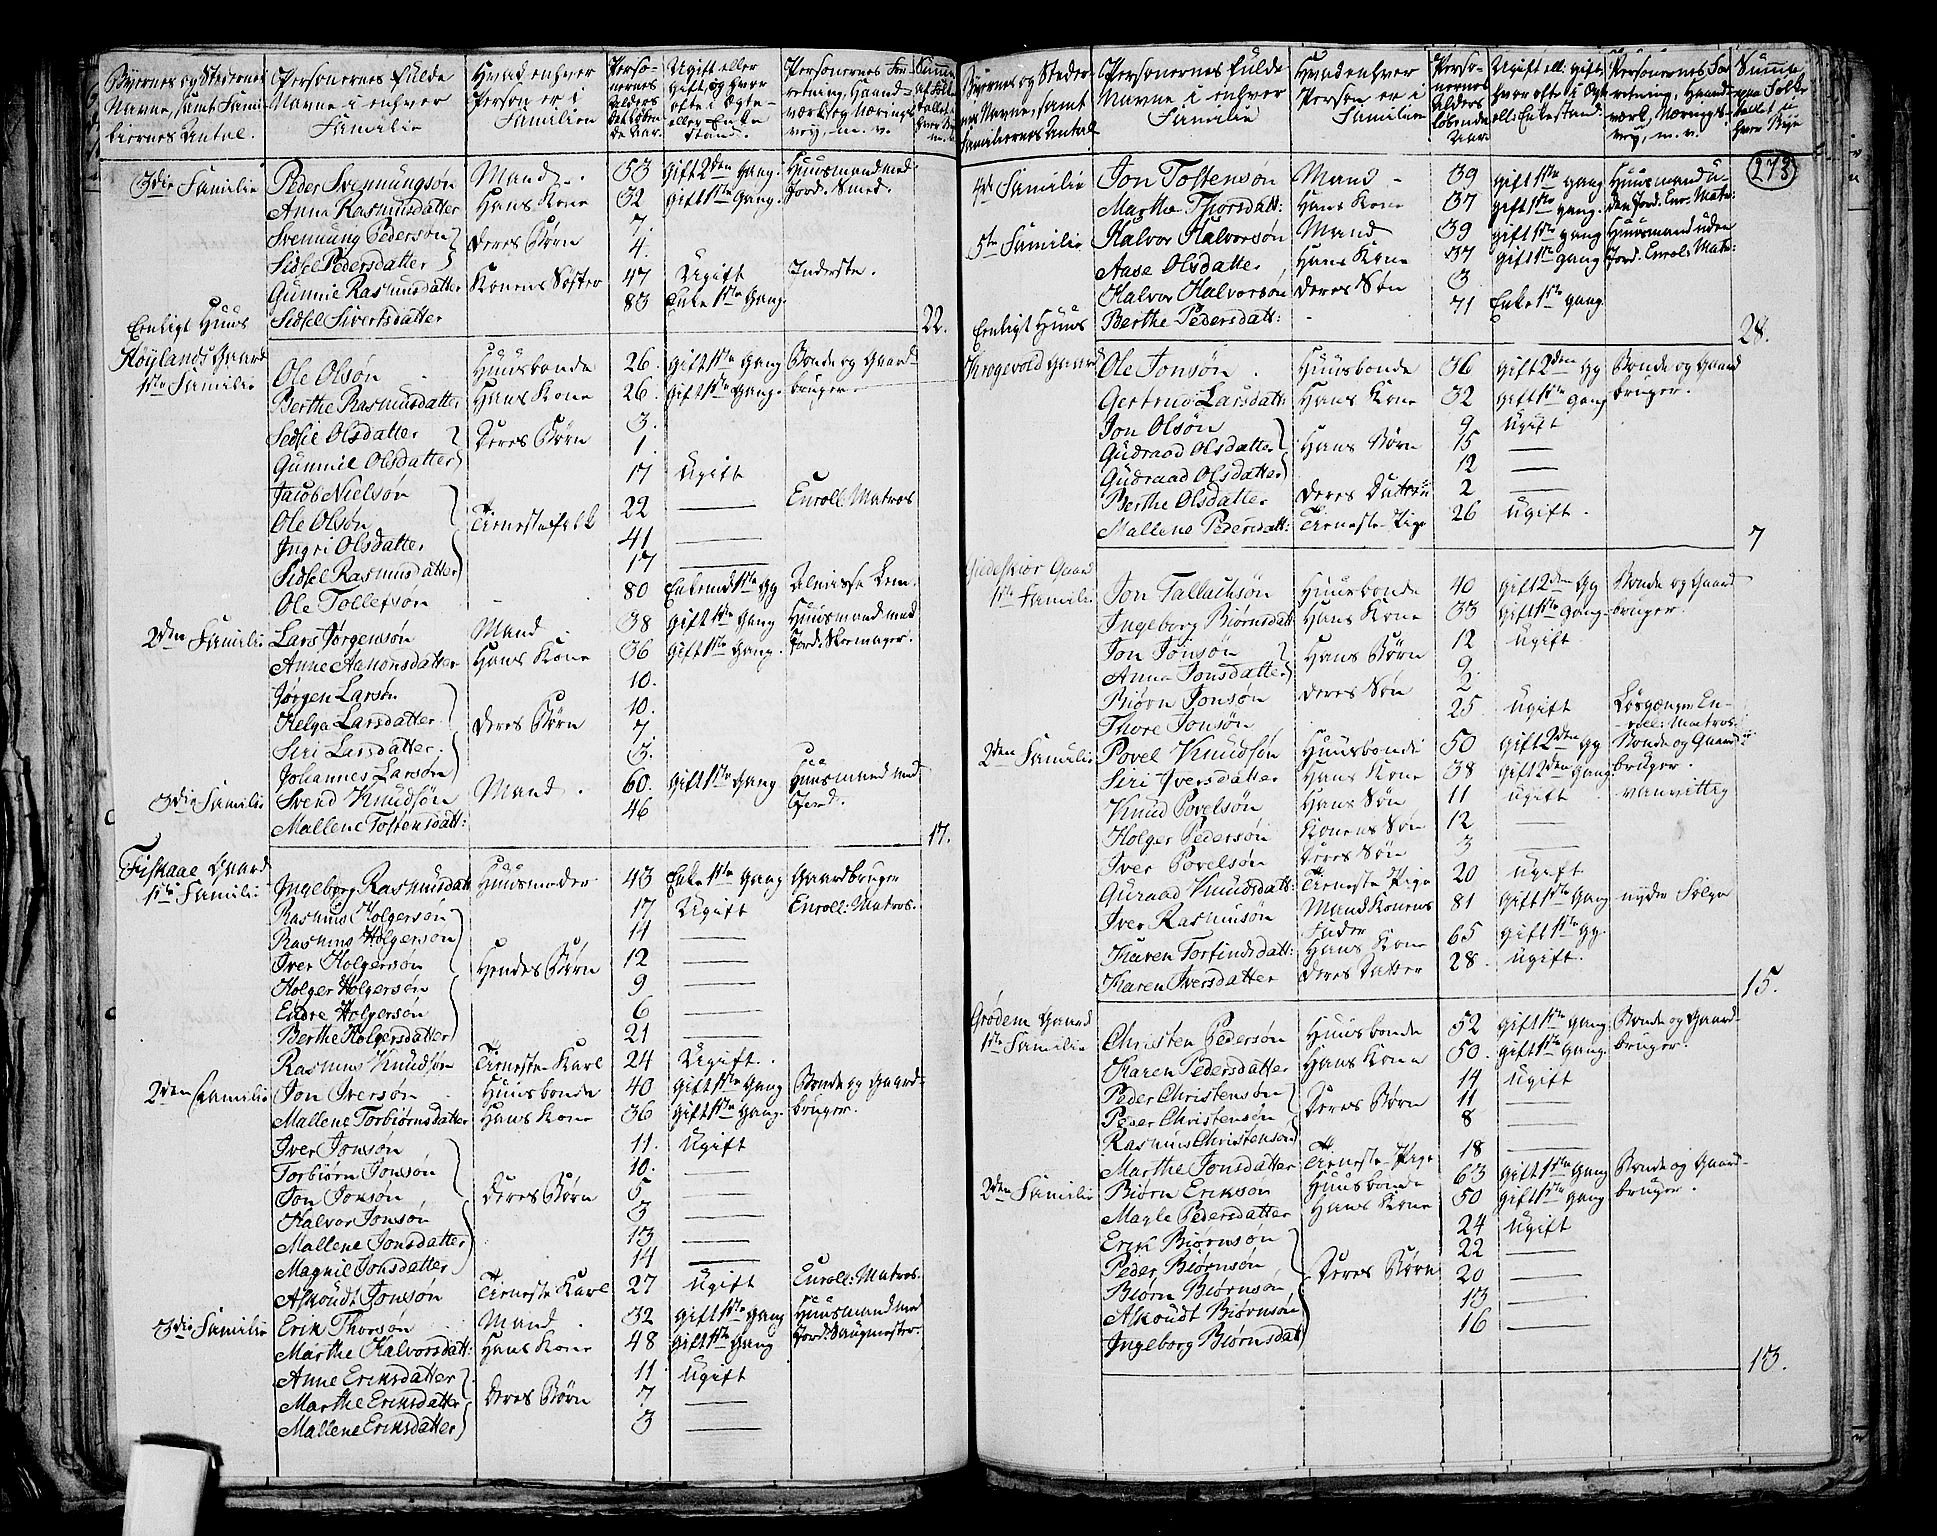 Byernes og Stedernes Navne, samt Familiernes Antal.
Personernes fulde Navne i enhver Familie
Hvad enhver Person er i Familien
Personernes Alders beløbende Aar.
Ugift eller Gift, og hvor ofte i Ægte- eller Enkestand.
Personernes Forretning, Haandværk og Næringsvey, m. v.
3die Familie Peder Svennungsøn Mand 53 Gift 2den Gang. Huusmand med
Anne Rasmusdatter Hans Kone 32 Gift 1ste Gang. Jord. Smed.
Svennung Pedersøn 7.
Deres Børn
Sidsel Pedersdatter 4.
Gunnie Rasmusdatter Konens Søster 47 Ugift Inderste.
Eenligt Huus Sidsel Sivertsdatter 83 Enke 1ste Gang. 22.
Høylands Gaard
1ste Familie Ole Olsøn Huusbonde 26. Gift 1ste Gang Bonde og Gaard
Berthe Rasmusdatter Hans Kone 26. Gift 1ste Gang. bruger.
Sidsie Olsdatter Deres Børn 3.
Gunnil Olsdatter 1.
Jacob Nielsøn 17 Ugift
Ole Olsøn Tieneste folk 22 — Enroll: Matros
Ingri Olsdatter 41 —
Sidsel Rasmusdatter 17 —
Ole Tollefsøn 80 Enkemd 1ste Gg Almisse Lem.
2den Familie Lars Jørgensøn Mand 38 Gift 1ste Gang Huusmand med
Anne Aanonsdatter Hans Kone 36 Gift 1ste Gang. Jord. Skomager.
Jørgen Larsøn 10.
Helga Larsdatter Deres Børn 10.
Siri Larsdatter 7
Johannes Larsøn 3.
3die Familie Svend Knudsøn Mand 60. Gift 1ste Gang Huusmand med
Mallene Tostensdatt: 46 Jord. 17.
Fiskaae Gaard
1ste Familie Ingeborg Rasmusdatt Huusmoder 43 Enke 1ste Gang Gaardbruger
Rasmus Holgersøn 17 Ugift Enroll: Matros.
Rasmus Holgersøn 14 —
Iver Holgersøn Hendes Børn 12 —
Holger Holgersøn 9 —
Endre Holgersøn 6 —
Berthe Holgersdatter 21 —
Rasmus Knudsøn Tieneste Karl 24 Ugift.
2den Familie Jon Iversøn Huusbonde 40 Gift 1ste Gang Bonde og Gaard-
Mallene Torbiørnsdatter Hans Kone 36 Gift 1ste Gang. bruger.
Iver Jonsøn 11. Ugift
Torbiørn Jonsøn 10. —
Jon Jonsøn Deres Børn 5 —
Halvor Jonsøn 3 —
Mallene Jonsdatter 13 —
Magnil Jonsdatter 14 —
Askoudt Jonsøn Tieneste Karl 27 Ugift Enroll: Matros.
3die Familie Erik Thorsøn Mand 32 Gift 1ste Gang Huusmand med
Marthe Halvorsdatt: Hans Kone 48 Gift 1ste Gang Jord. Saugmester.
Anne Eriksdatter 11 Ugift
Marthe Eriksdatter Deres Børn 7 —
Mallene Eriksdatter 3 —
Byernes og Steder nes Navne, samt Familiernes Antal
Personernes fulde Navne i enhver Familie
Hvad enhver Person er i Familien
Personernes Alders løbende Aar
Ugift ell: gift, hvor ofte i Ægte ell: Enkestand.
Personernes Forretning, Haandværk, Næringsvey, m. v.
Summa paa Folketallet i hver Bye
273
4de Familie Jon Tostensøn Mand 39 Gift 1ste Gang Huusmand u-
Marthe Thorsdatt: Hans Kone 37 Gift 1ste Gang. den Jord. Enr. Matr:
5te Familie Halvor Halvorsøn Mand 39 Gift 1ste Gang Huusmand uden
Aase Olsdatter Hans Kone 37 Gift 1ste Gang Jord. Enrol: Matr:
Halvor Halvorsøn Deres Søn 3
Eenligt Huus Berthe Pedersdatt: 71 Enke 1ste gang. 28.
Krogevold Gaard Ole Jonsøn Huusbonde 36 Gift 2den Gg Bonde og Gaard
Gertrud Larsdatt: Hans Kone 32 Gift 1ste Gang bruger.
Jon Olsøn 9 Ugift
Gudraad Olsdatter Hans Børn 15 —
Gudraad Olsdatter 12 —
Berthe Olsdatter Deres Datter 2 —
Mallene Pedersdatt: Tieneste Pige 26 Ugift. 7
Gaard
1ste Familie Jon Tallachsøn Huusbonde 40 Gift 2den Gg Bonde og Gaard
Ingeborg Biørnsdatt Hans Kone 33 Gift 1ste Gang. bruger.
Jon Jonsøn Hans Børn 12 Ugift
Anna Jonsdatter 9.
Biørn Jonsøn Deres Søn 2
Thore Jonsøn 25 Ugift Løsgænger En-
roll: Matros.
2den Familie Povel Knudsøn Huusbonde 50 Gift 2den Gg Bonde og Gaard
Siri Iversdatter Hans Kone 38 Gift 2den Gang bruger.
Knud Povelsøn Hans Søn 11 Ugift vanvittig
Holger Pedersøn Konens Søn 12 —
Iver Povelsøn Deres Søn 3 —
Guraad Knudsdatt: Tieneste Pige 20 Ugift
Iver Rasmusøn Mand Konens Fader 81 Gift 1ste Gang nyder Følge
Karen Torfindsdatt: Hans Kone 65 Gift 1ste Gg.
Karen Iversdatter Deres Datter 28. Ugift. 15.
Grødem Gaard
1ste Familie Christen Pedersøn Huusbonde 52 Gift 1ste Gang Bonde og Gaard-
Karen Pedersdatter Hans Kone 50. Gift 1ste Gang. bruger.
Peder Christensøn 14 Ugift
Peder Christensøn Deres Børn 11 —
Rasmus Christensøn 8 —
Marthe Jonsdatter Tieneste Pige 18 —
2den Familie Biørn Eriksøn Huusbonde 63 Gift 1ste Gang Bonde og Gaard-
Magle Pedersdatter Hans Kone 50 Gift 1ste Gang bruger.
Erik Biørnsøn 24 Ugift
Peder Biørnsøn 22 —
Biørn Biørnsøn Deres Børn 20 —
Askoudt Biørnsøn 13 —
Ingeborg Biørnsdat 16 —
13.